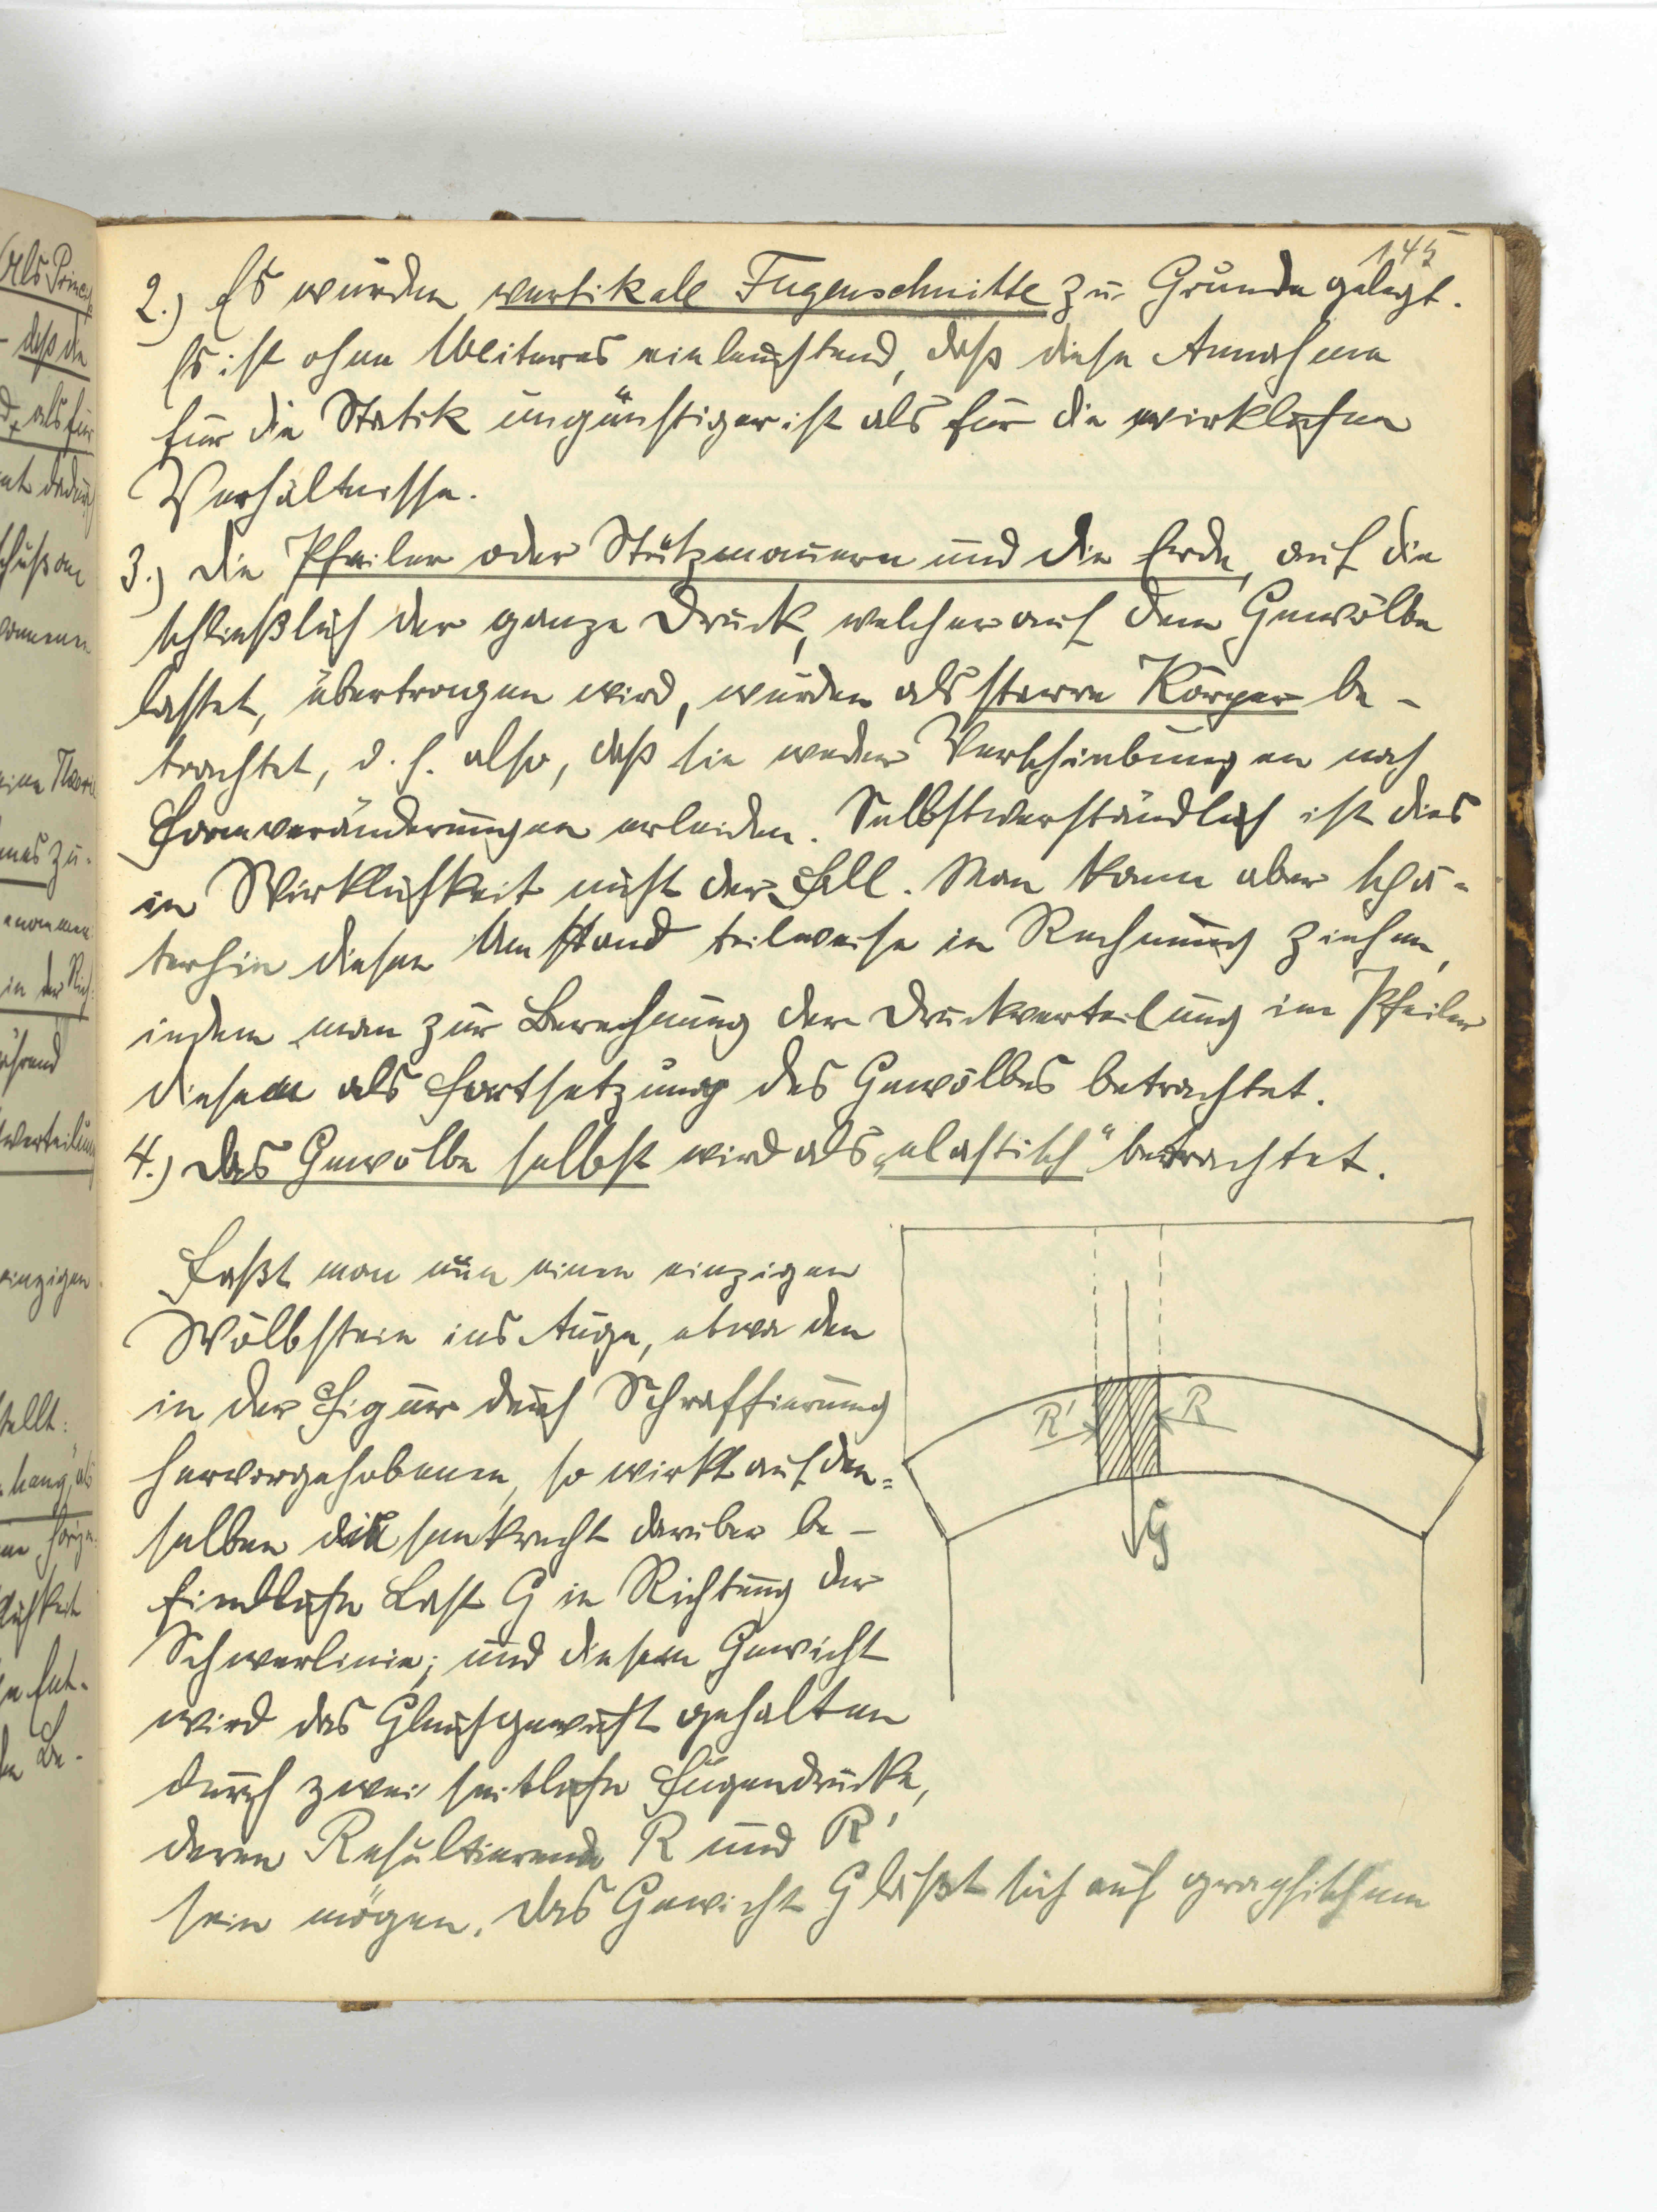 145
2.) Es wurden vertikale Fugenschnitte zu Grunde gelegt.
Es ist ohne Weiteres einleuchtend, daß diese Annahme
für die Statik ungünstiger ist als für die wirklichen
Verhältnisse.
3.) Die Pfeiler oder Stützmauern und die Erde, auf die
schließlich der ganze Druck, welcher auf dem Gewölbe
lastet, übertragen wird, wurden als starre Körper be-
trachtet, d. h. also, daß sie weder Verschiebungen noch
Formveränderungen erleiden. Selbstverständlich ist dies
in Wirklichkeit nicht der Fall. Man kann aber spä-
terhin diesen Umstand teilweise in Rechnung ziehen,
indem man zur Berechnung der Druckverteilung im Pfeiler
diesen als Fortsetzung des Gewölbes betrachtet.
4.) Das Gewölbe selbst wird als „elastisch“ betrachtet.
Faßt man nun einen einzigen
Wölbstein ins Auge, etwa den
in der Figur durch Schraffierung
hervorgehobenen, so wirkt auf den-
selben die senkrecht darüber be-
findliche Last G in Richtung der
Schwerlinie; und diesem Gewicht
wird das Gleichgewicht gehalten
durch zwei seitliche Fugendrucke,
deren Resultierende R und R'
sein mögen. Das Gewicht G läßt sich auf graphischem
R'
R
G